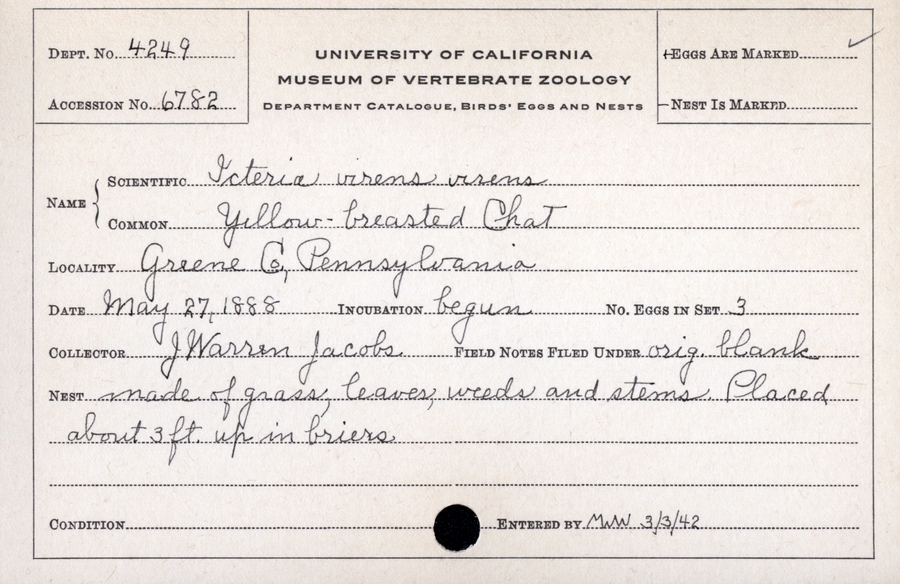 DEPT. NO. 4249
ACCESSION NO. 6782
UNIVERSITY OF CALIFORNIA
MUSEUM OF VERTEBRATE ZOOLOGY
DEPARTMENT CATALOGUE, BIRDS' EGGS AND NESTS
EGGS ARE MARKED ✓
NEST IS MARKED
NAME
SCIENTIFIC Icteria virens virens
COMMON Yellow-breasted Chat
LOCALITY Greene Co., Pennsylvania
DATE May 27, 1888 INCUBATION begun NO. EGGS IN SET 3
COLLECTOR J Warren Jacobs FIELD NOTES FILED UNDER orig. blank
NEST made of grass, leaves, weeds and stems. Placed
about 3 ft. up in briers
CONDITION ENTERED BY MWW 3/3/42